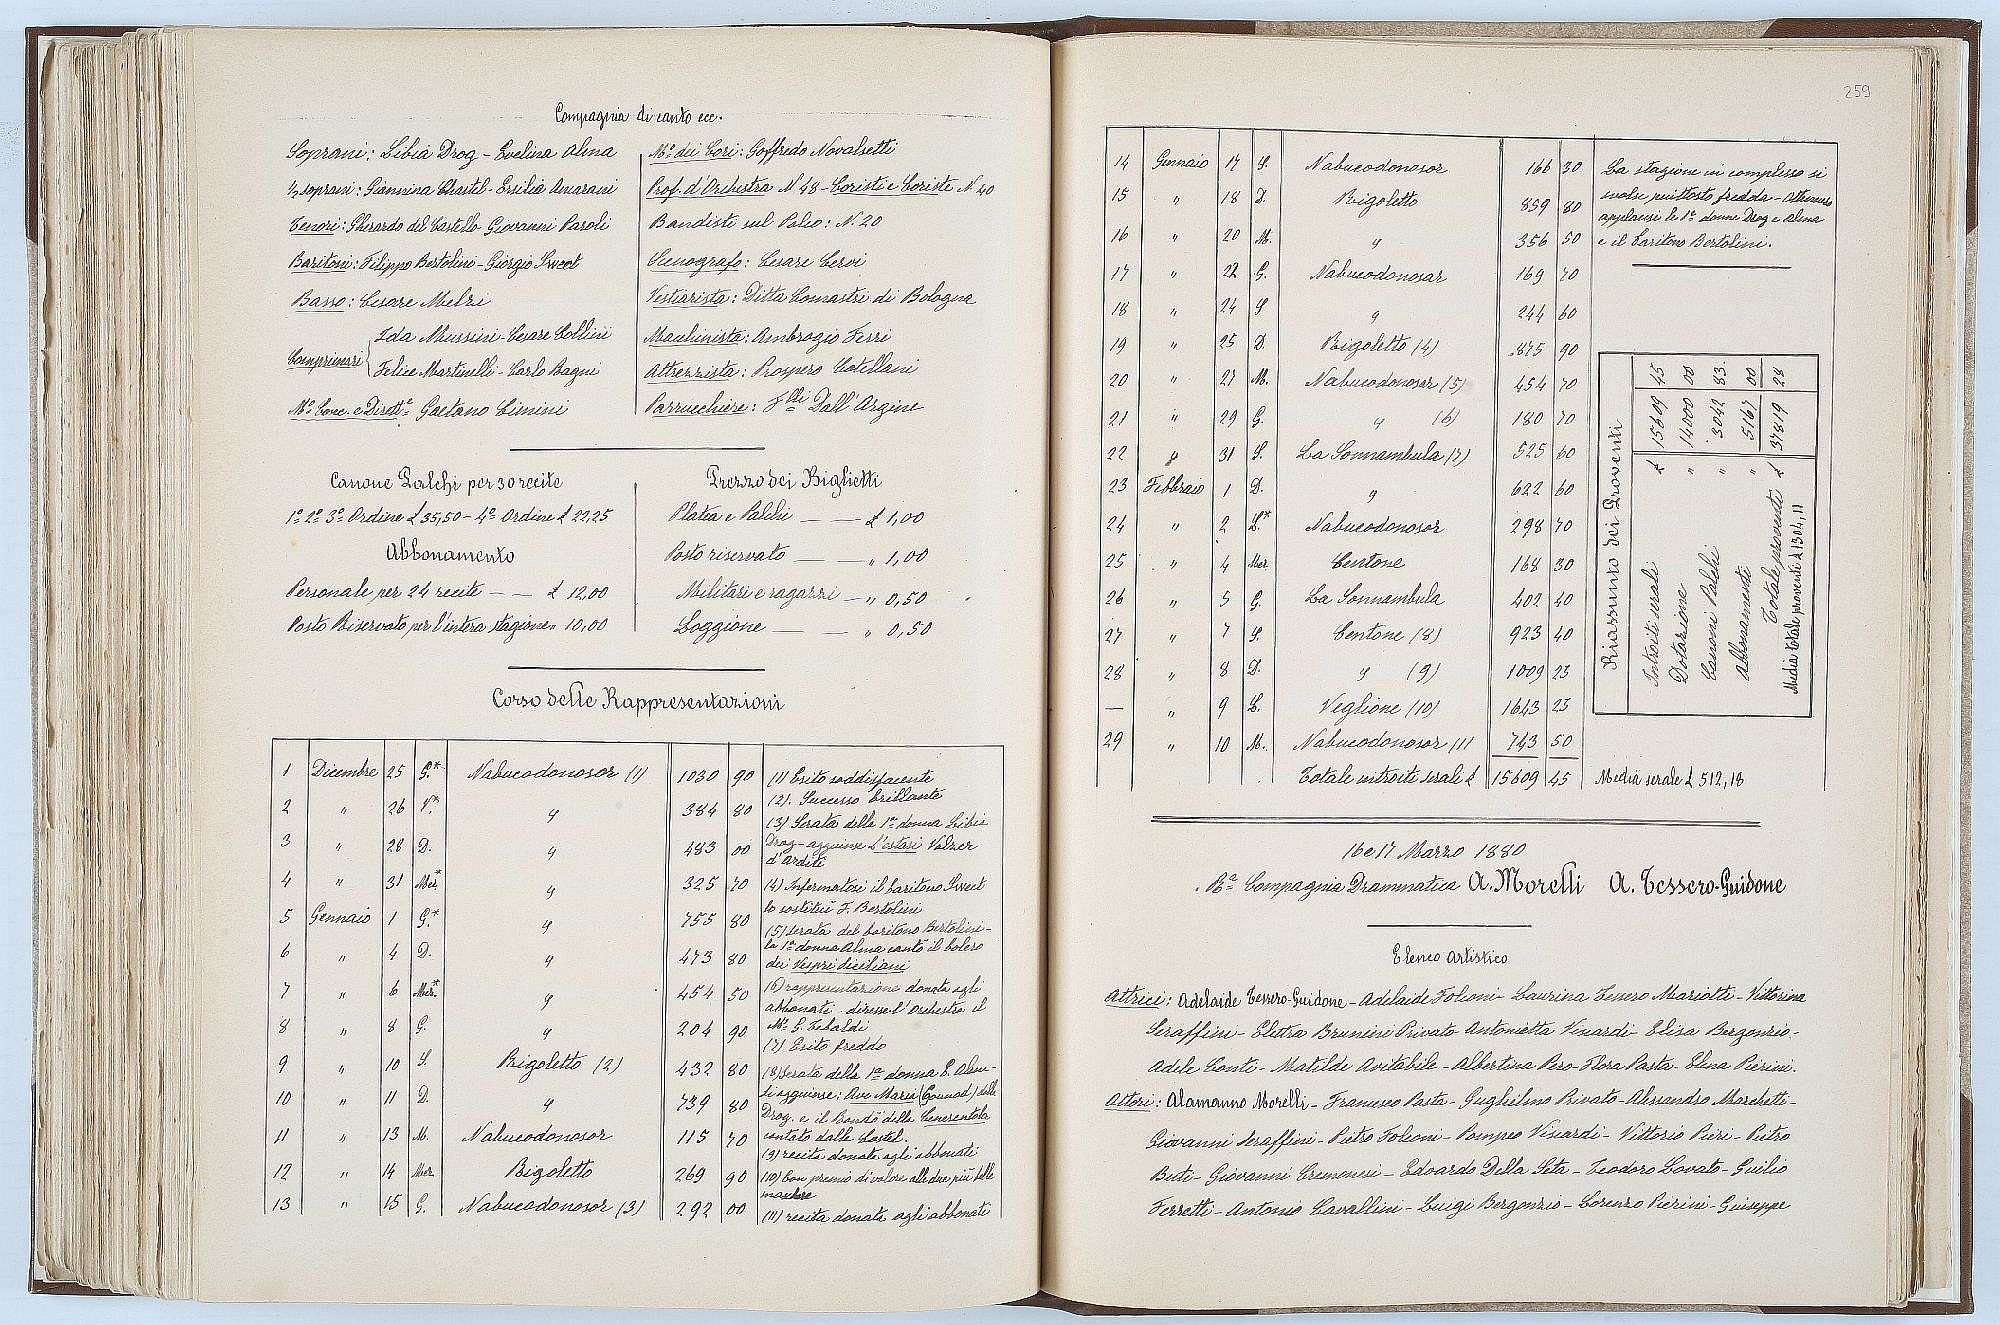 Compagnia di canto ecc.
Soprani: Libia Drog - Evelina Alma
½ soprani: Giannina Chastel - Ersilia Ancarani
Tenori: Gherardo del Castello Giovanni Paroli
Baritoni: Filippo Bertolini - Giorgio Sweet
Basso: Cesare Melzi
Comprimari { Ida Mussini - Cesare Collini
Felice Martinelli - Carlo Bagni
Mº Conc. e Dirett.e Gaetano Cimini
Mº dei Cori: Goffredo Novalsetti
Prof. d'Orchestra N 48 - Coristi e Coriste N 40
Bandisti sul Palco: N. 20
Scenografo: Cesare Cervi
Vestiarista: Ditta Comastri di Bologna
Macchinista: Ambrogio Ferri
Attrezzista: Prospero Cotellani
Parrucchiere: F.lli Dall'Argine
Canone Palchi per 30 recite
1º 2º 3º Ordine £ 35,50 - 4º Ordine £ 22,25
Abbonamento
Personale per 24 recite — — £ 12,00
Posto Riservato per l'intera stagione „ 10,00
Prezzo dei Biglietti
Platea e Palchi — — £ 1,00
Posto riservato — — „ 1,00
Militari e ragazzi — „ 0,50
Loggione — — „ 0,50
Corso delle Rappresentazioni
1 Dicembre 25 G.* Nabucodonosor (1) 1030 90
2 „ 26 V.* „ 384 80
3 „ 28 D. „ 483 00
4 „ 31 Mer.* „ 325 70
5 Gennaio 1 G.* „ 755 80
6 „ 4 D. „ 473 80
7 „ 6 Mer.* „ 454 50
8 „ 8 G. „ 204 90
9 „ 10 S. Rigoletto (2) 432 80
10 „ 11 D. „ 739 80
11 „ 13 M. Nabucodonosor 115 70
12 „ 14 Mer. Rigoletto 269 90
13 „ 15 G. Nabucodonosor (3) 292 00
(1) Esito soddisfacente
(2). Successo brillante
(3) Serata della 1ª donna Libia
Drog - aggiunse L'estasi Valzer
d'Arditi
(4) Infermatosi il baritono Sweet
lo sostituì F. Bertolini
(5) Serata del baritono Bertolini -
la 1ª donna Alma cantò il bolero
dei Vespri Siciliani
(6) rappresentazione donata agli
abbonati - diresse l'Orchestra il
Mº G. Tebaldi
(7) Esito freddo
(8) Serata della 1ª donna E. Alma -
si aggiunse: Ave Maria (Gounod) dalla
Drog. e il Rondò della Cenerentola
cantato dalla Castel.
(9) recita donata agli abbonati
(10) Con premio di valore alle due più belle
maschere
(11) recita donata agli abbonati
259
14 Gennaio 17 S. Nabucodonosor 166 30
15 „ 18 D. Rigoletto 859 80
16 „ 20 M. „ 356 50
17 „ 22 G. Nabucodonosor 169 70
18 „ 24 S „ 244 60
19 „ 25 D. Rigoletto (4) 875 90
20 „ 27 M. Nabucodonosor (5) 454 70
21 „ 29 G. „ (6) 180 70
22 „ 31 S. La Sonnambula (7) 525 60
23 Febbraio 1 D. „ 622 60
24 „ 2 L.* Nabucodonosor 298 70
25 „ 4 Mer Centone 168 30
26 „ 5 G. La Sonnambula 402 40
27 „ 7 S. Centone (8) 923 40
28 „ 8 D. „ (9) 1009 25
— „ 9 L. Veglione (10) 1643 25
29 „ 10 M. Nabucodonosor 11 743 50
Totale introiti serali £ 15609 45 Media serale £ 512,18
La stagione in complesso si
svolse piuttosto fredda - Ottennero
applausi le 1e donne Drog e Alma
e il baritono Bertolini.
Riassunto dei Proventi
Introiti serali £ 15609 45
Dotazione „ 14000 00
Canoni Palchi „ 3042 83
Abbonamenti „ 5167 00
Totale proventi £ 37819 28
Media totale proventi £ 1304,11
16 e 17 Marzo 1880
Rª Compagnia Drammatica A. Morelli A. Tessero-Guidone
Elenco Artistico
Attrici: Adelaide Tessero-Guidone - Adelaide Falconi - Laurina Tessero Mariotti - Vittorina
Seraffini - Eletra Brunini Privato Antonietta Vinardi - Elisa Bergonzio -
Adele Conti - Matilde Avitabile - Albertina Pero - Flora Pasta - Elena Pierini.
Attori: Alamanno Morelli - Francesco Pasta - Guglielmo Privato - Alessandro Marchetti -
Giovanni Seraffini - Pietro Falconi - Pompeo Vinardi - Vittorio Pieri - Pietro
Buti - Giovanni Cremonesi - Edoardo Della Seta - Teodoro Lovato - Guilio
Ferretti - Antonio Cavallini - Luigi Bergonzio - Lorenzo Pierini - Giuseppe